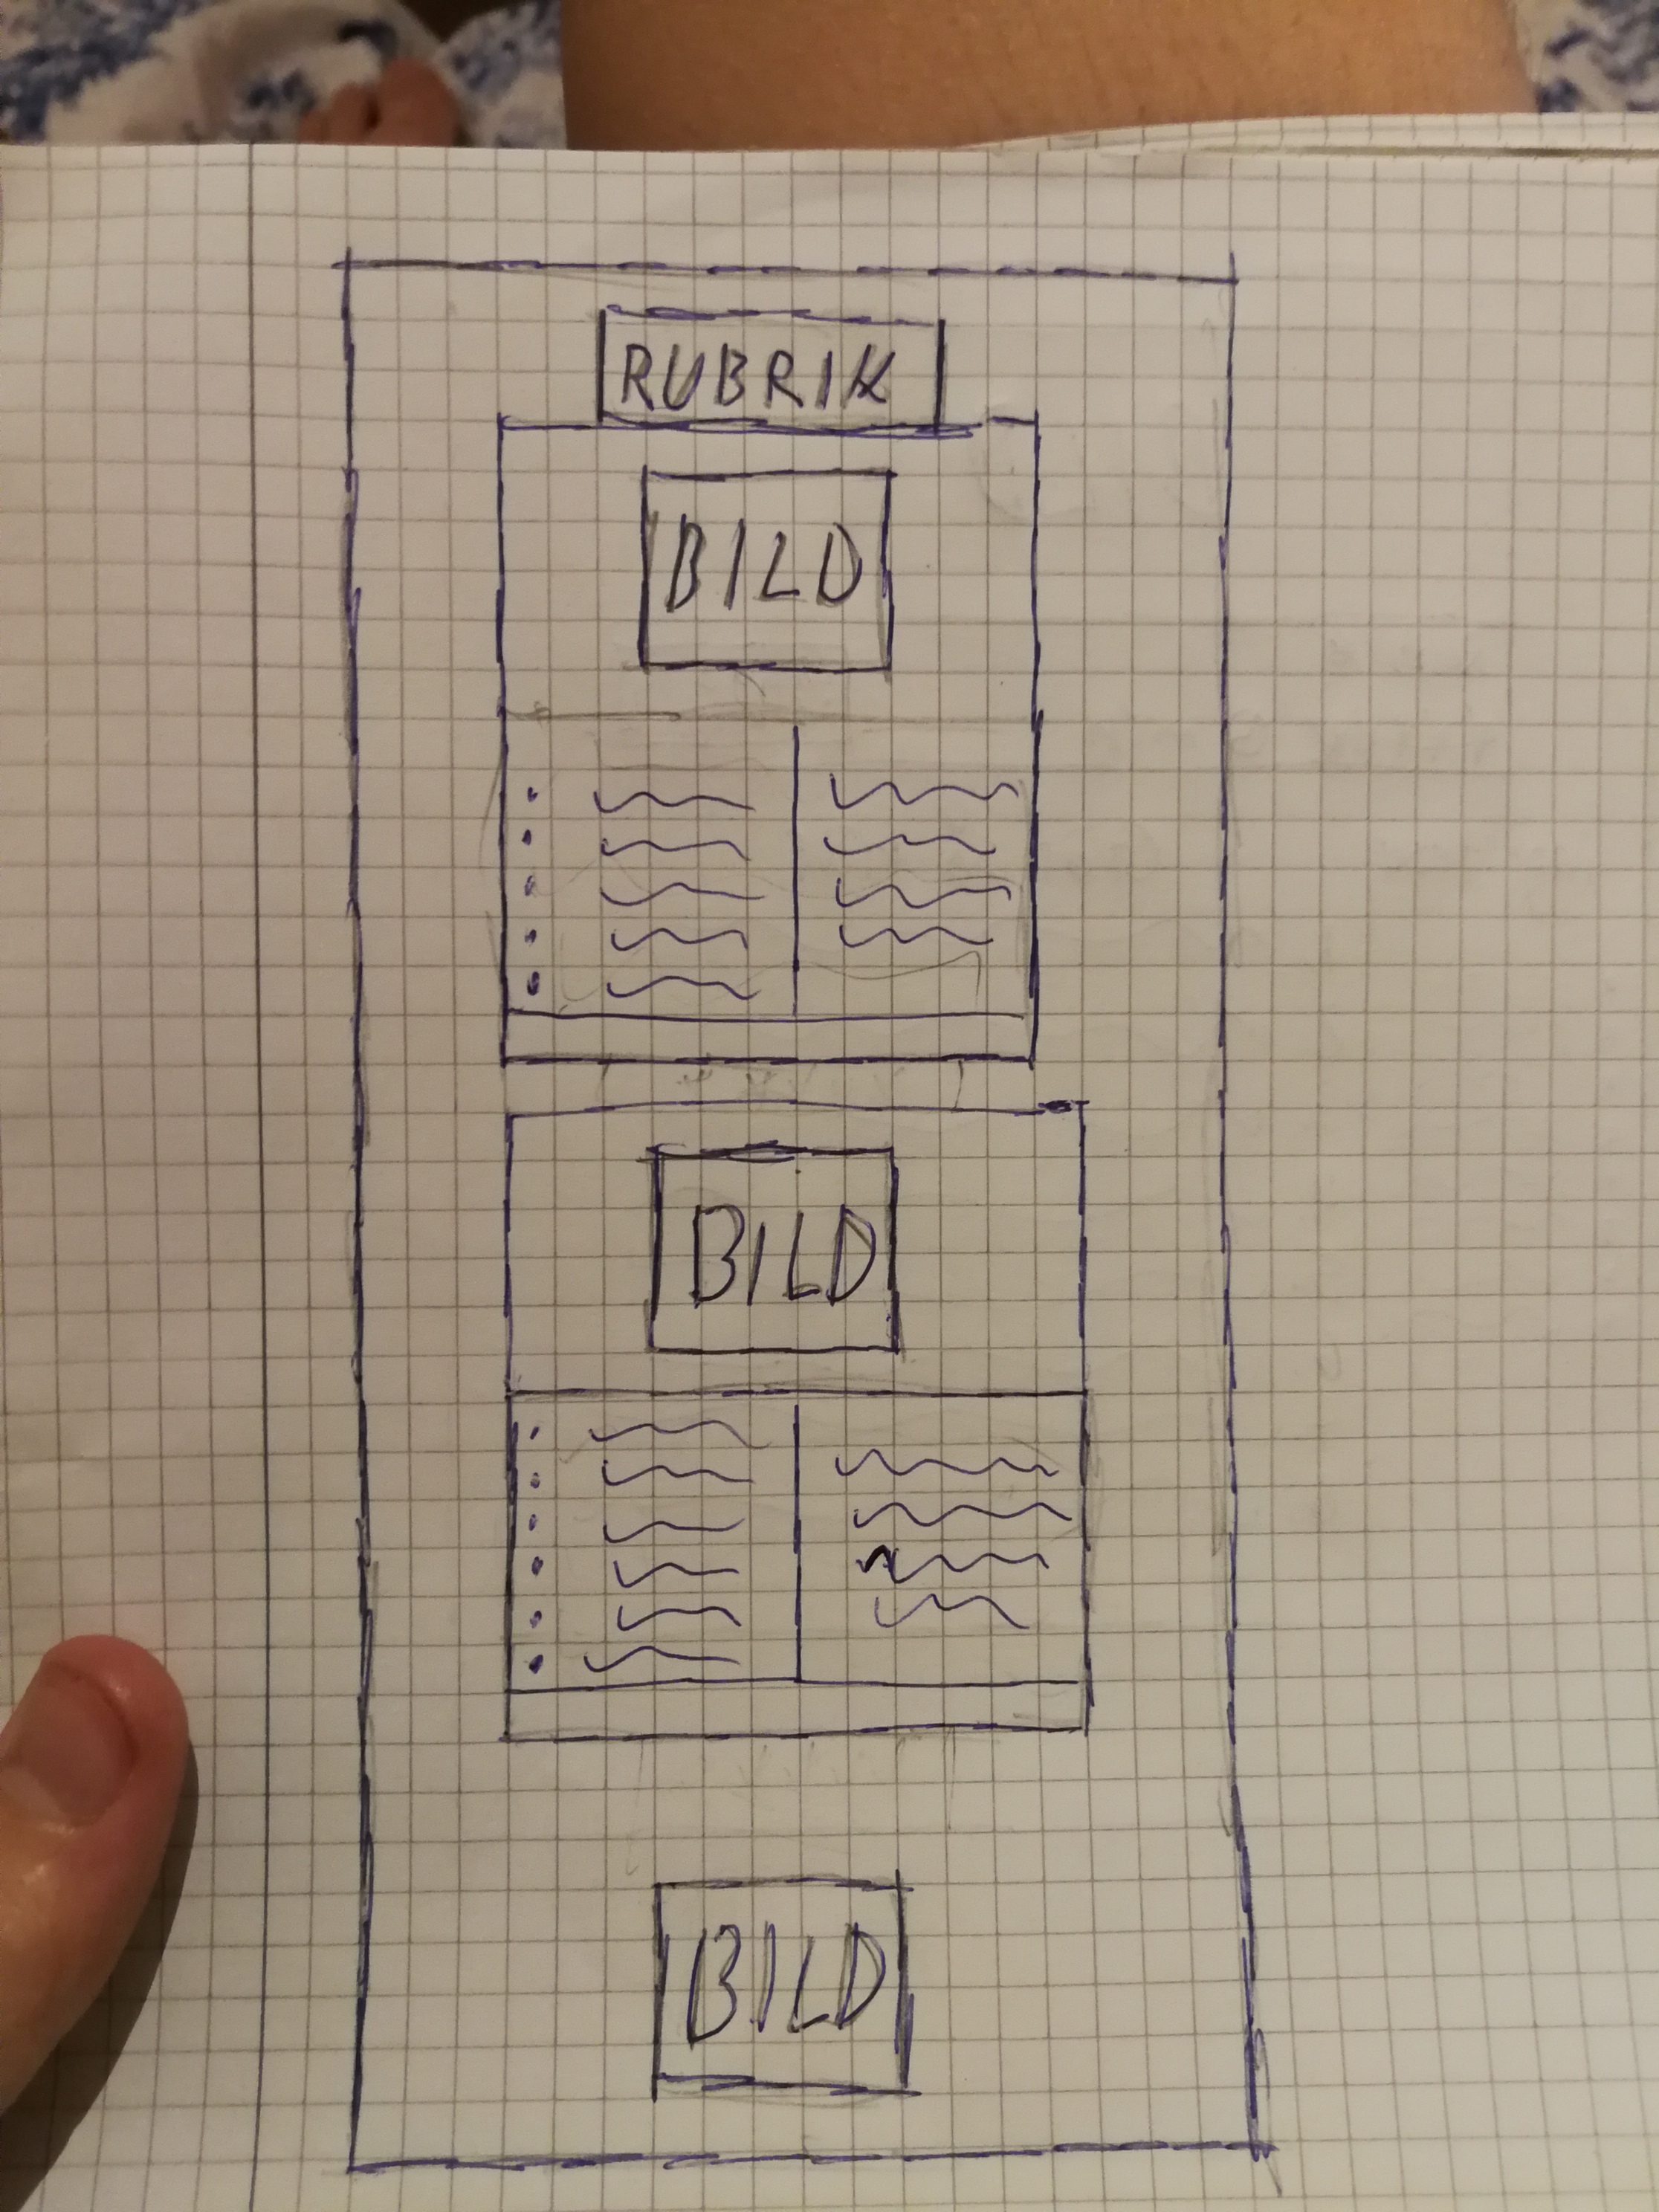 RUBRIK
BILD
BILD
BILD